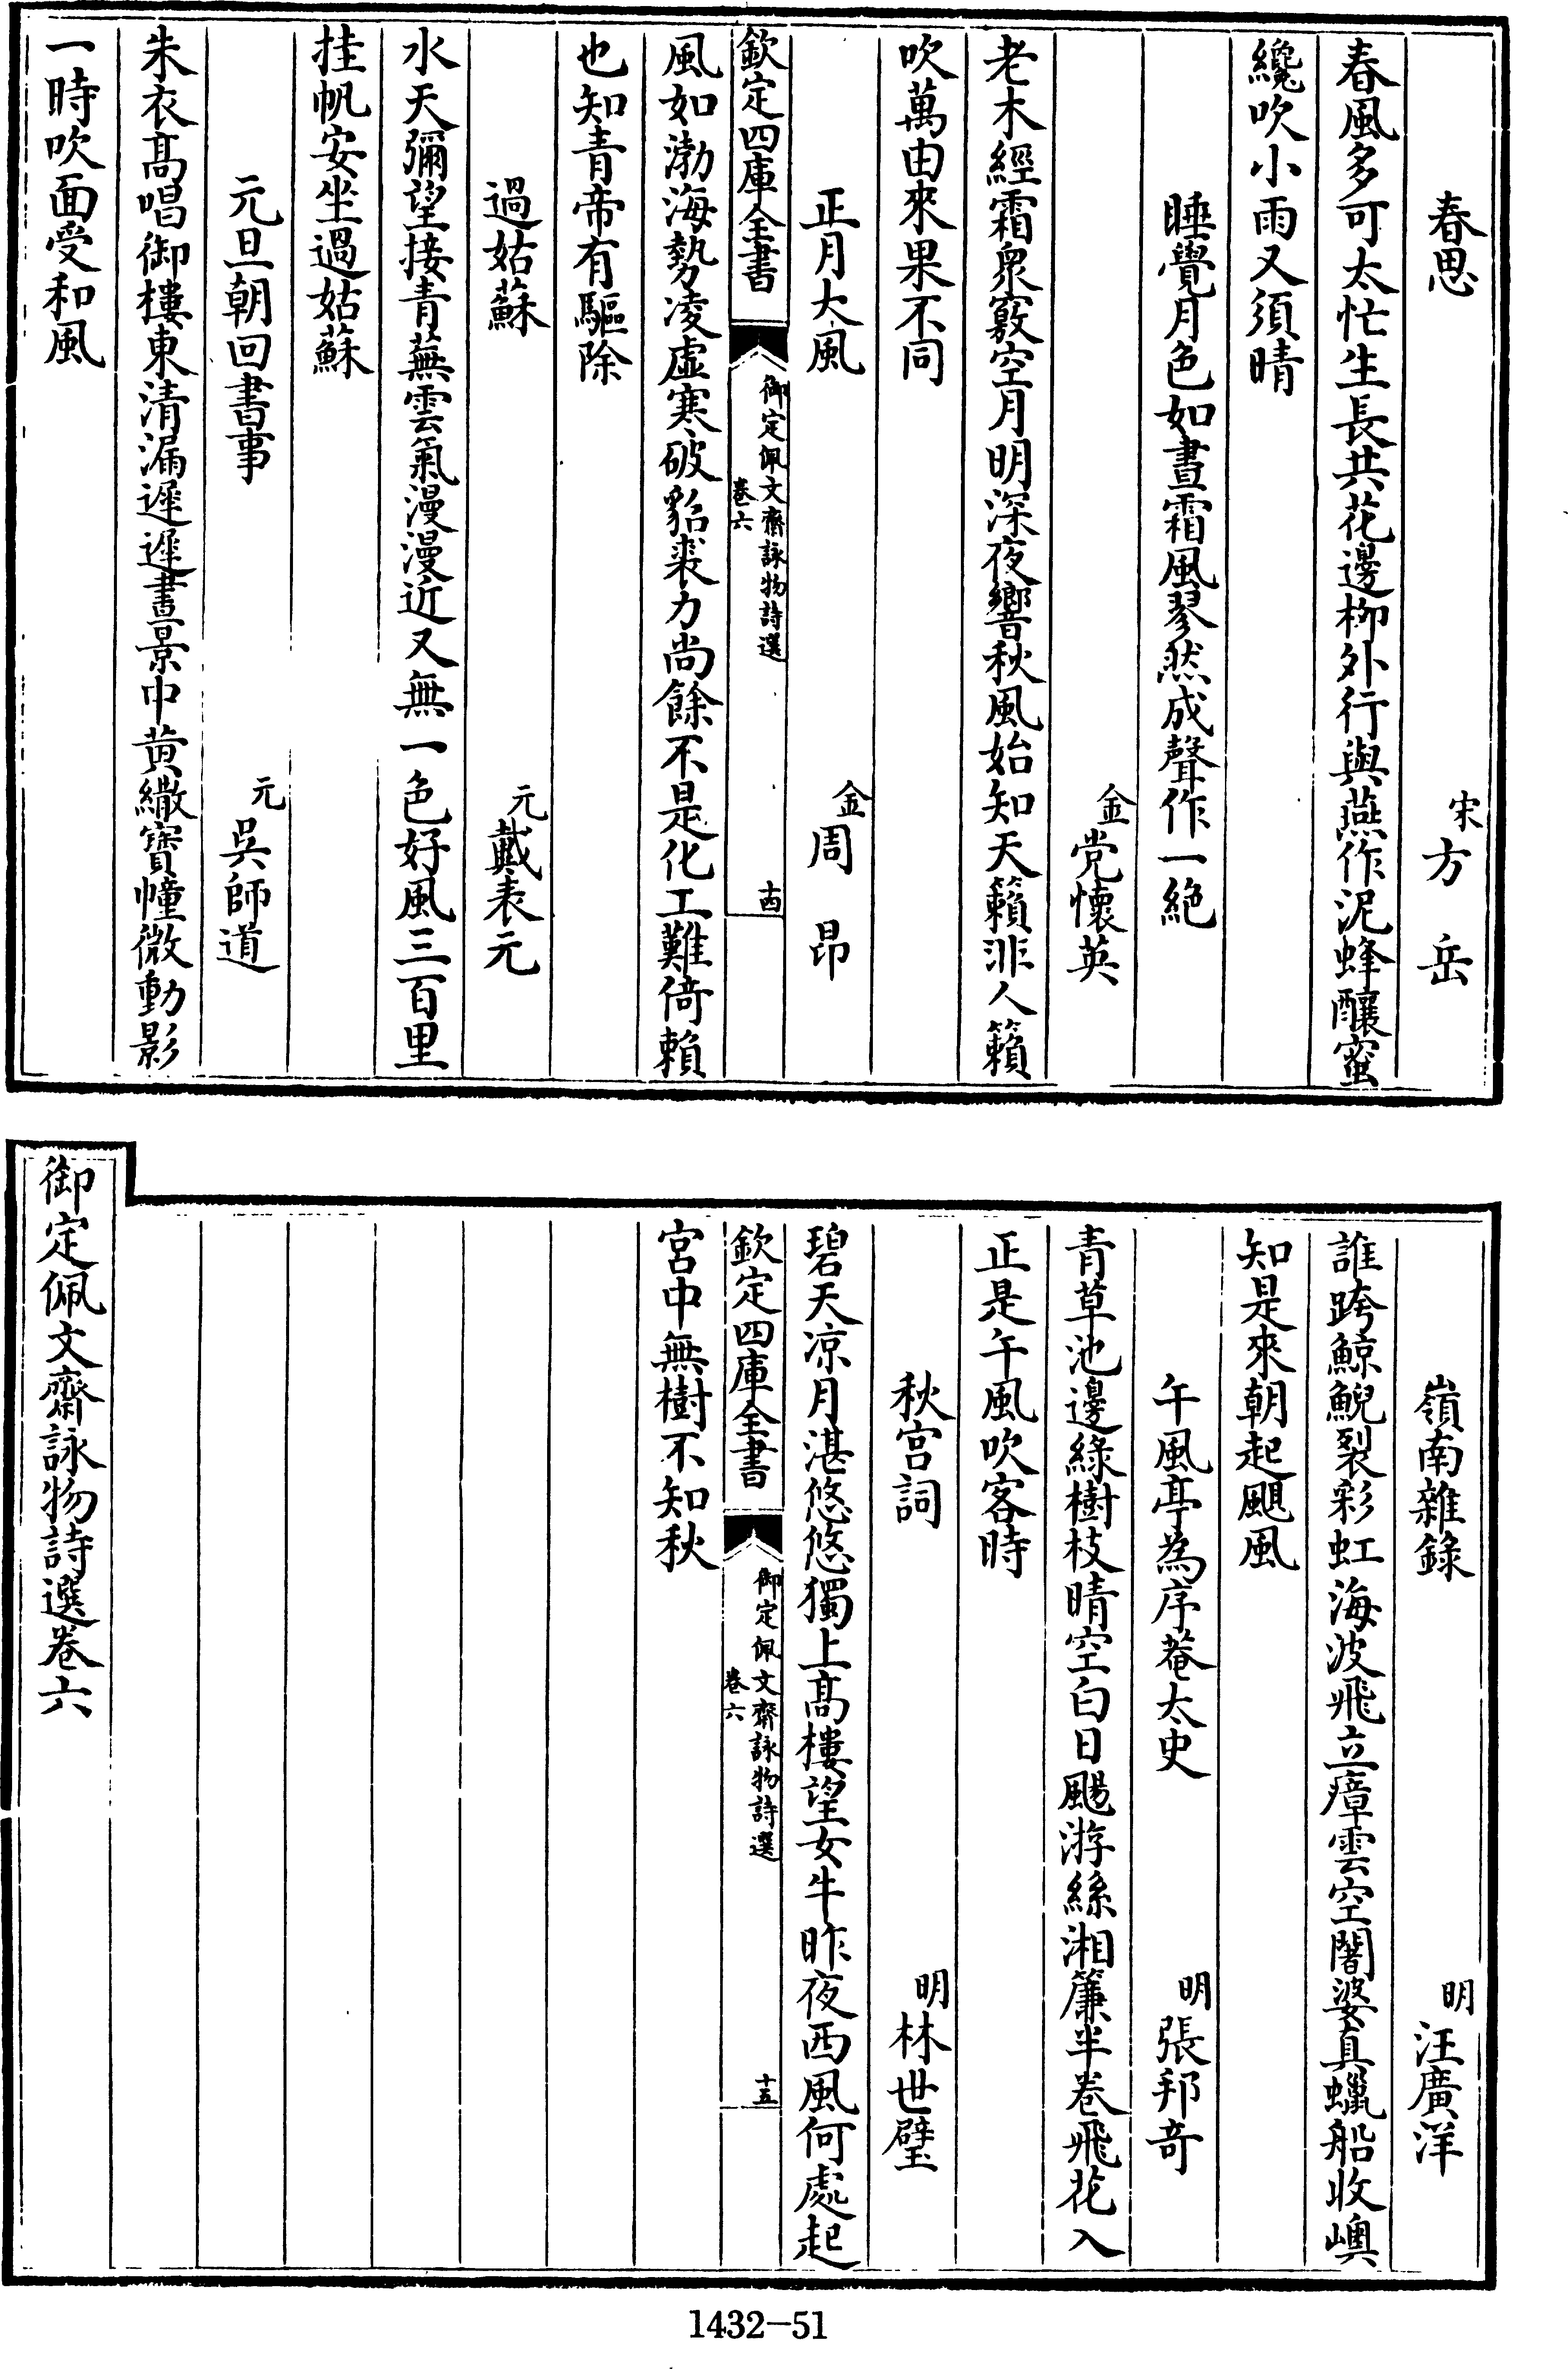 春思　宋方岳
春風多可太忙生長共花邊柳外行與燕作泥蜂釀蜜
纔吹小雨又須晴
睡覺月色如晝霜風翏然成聲作一絶
金党懷英
老木經霜衆竅空月明深夜響秋風始知天籟非人籟
吹萬由來果不同
正月大風　金周昂
欽定四庫全書　御定佩文齋詠物詩選　卷六　十四
風如渤海勢凌虛寒破貂裘力尚餘不是化工難倚賴
也知青帝有驅除
過姑蘇　元戴表元
水天彌望接青蕪雲氣漫漫近又無一色好風三百里
挂帆安坐過姑蘇
元旦朝回書事　元吳師道
朱衣髙唱御樓東清漏遲遲晝景中黄繖寳幢微動影
一時吹面受和風
嶺南雜錄　明汪廣洋
誰跨鯨鯢裂彩虹海波飛立瘴雲空闍婆真蠟船收㠗
知是來朝起颶風
午風亭為序菴太史　明張邦竒
青草池邊綠樹枝晴空白日颺游絲湘簾半卷飛花入
正是午風吹客時
秋宫詞　明林世璧
碧天凉月湛悠悠獨上髙樓望女牛昨夜西風何處起
欽定四庫全書　御定佩文齋詠物詩選　卷六　十五
宮中無樹不知秋
御定佩文齋詠物詩選卷六
1432-51